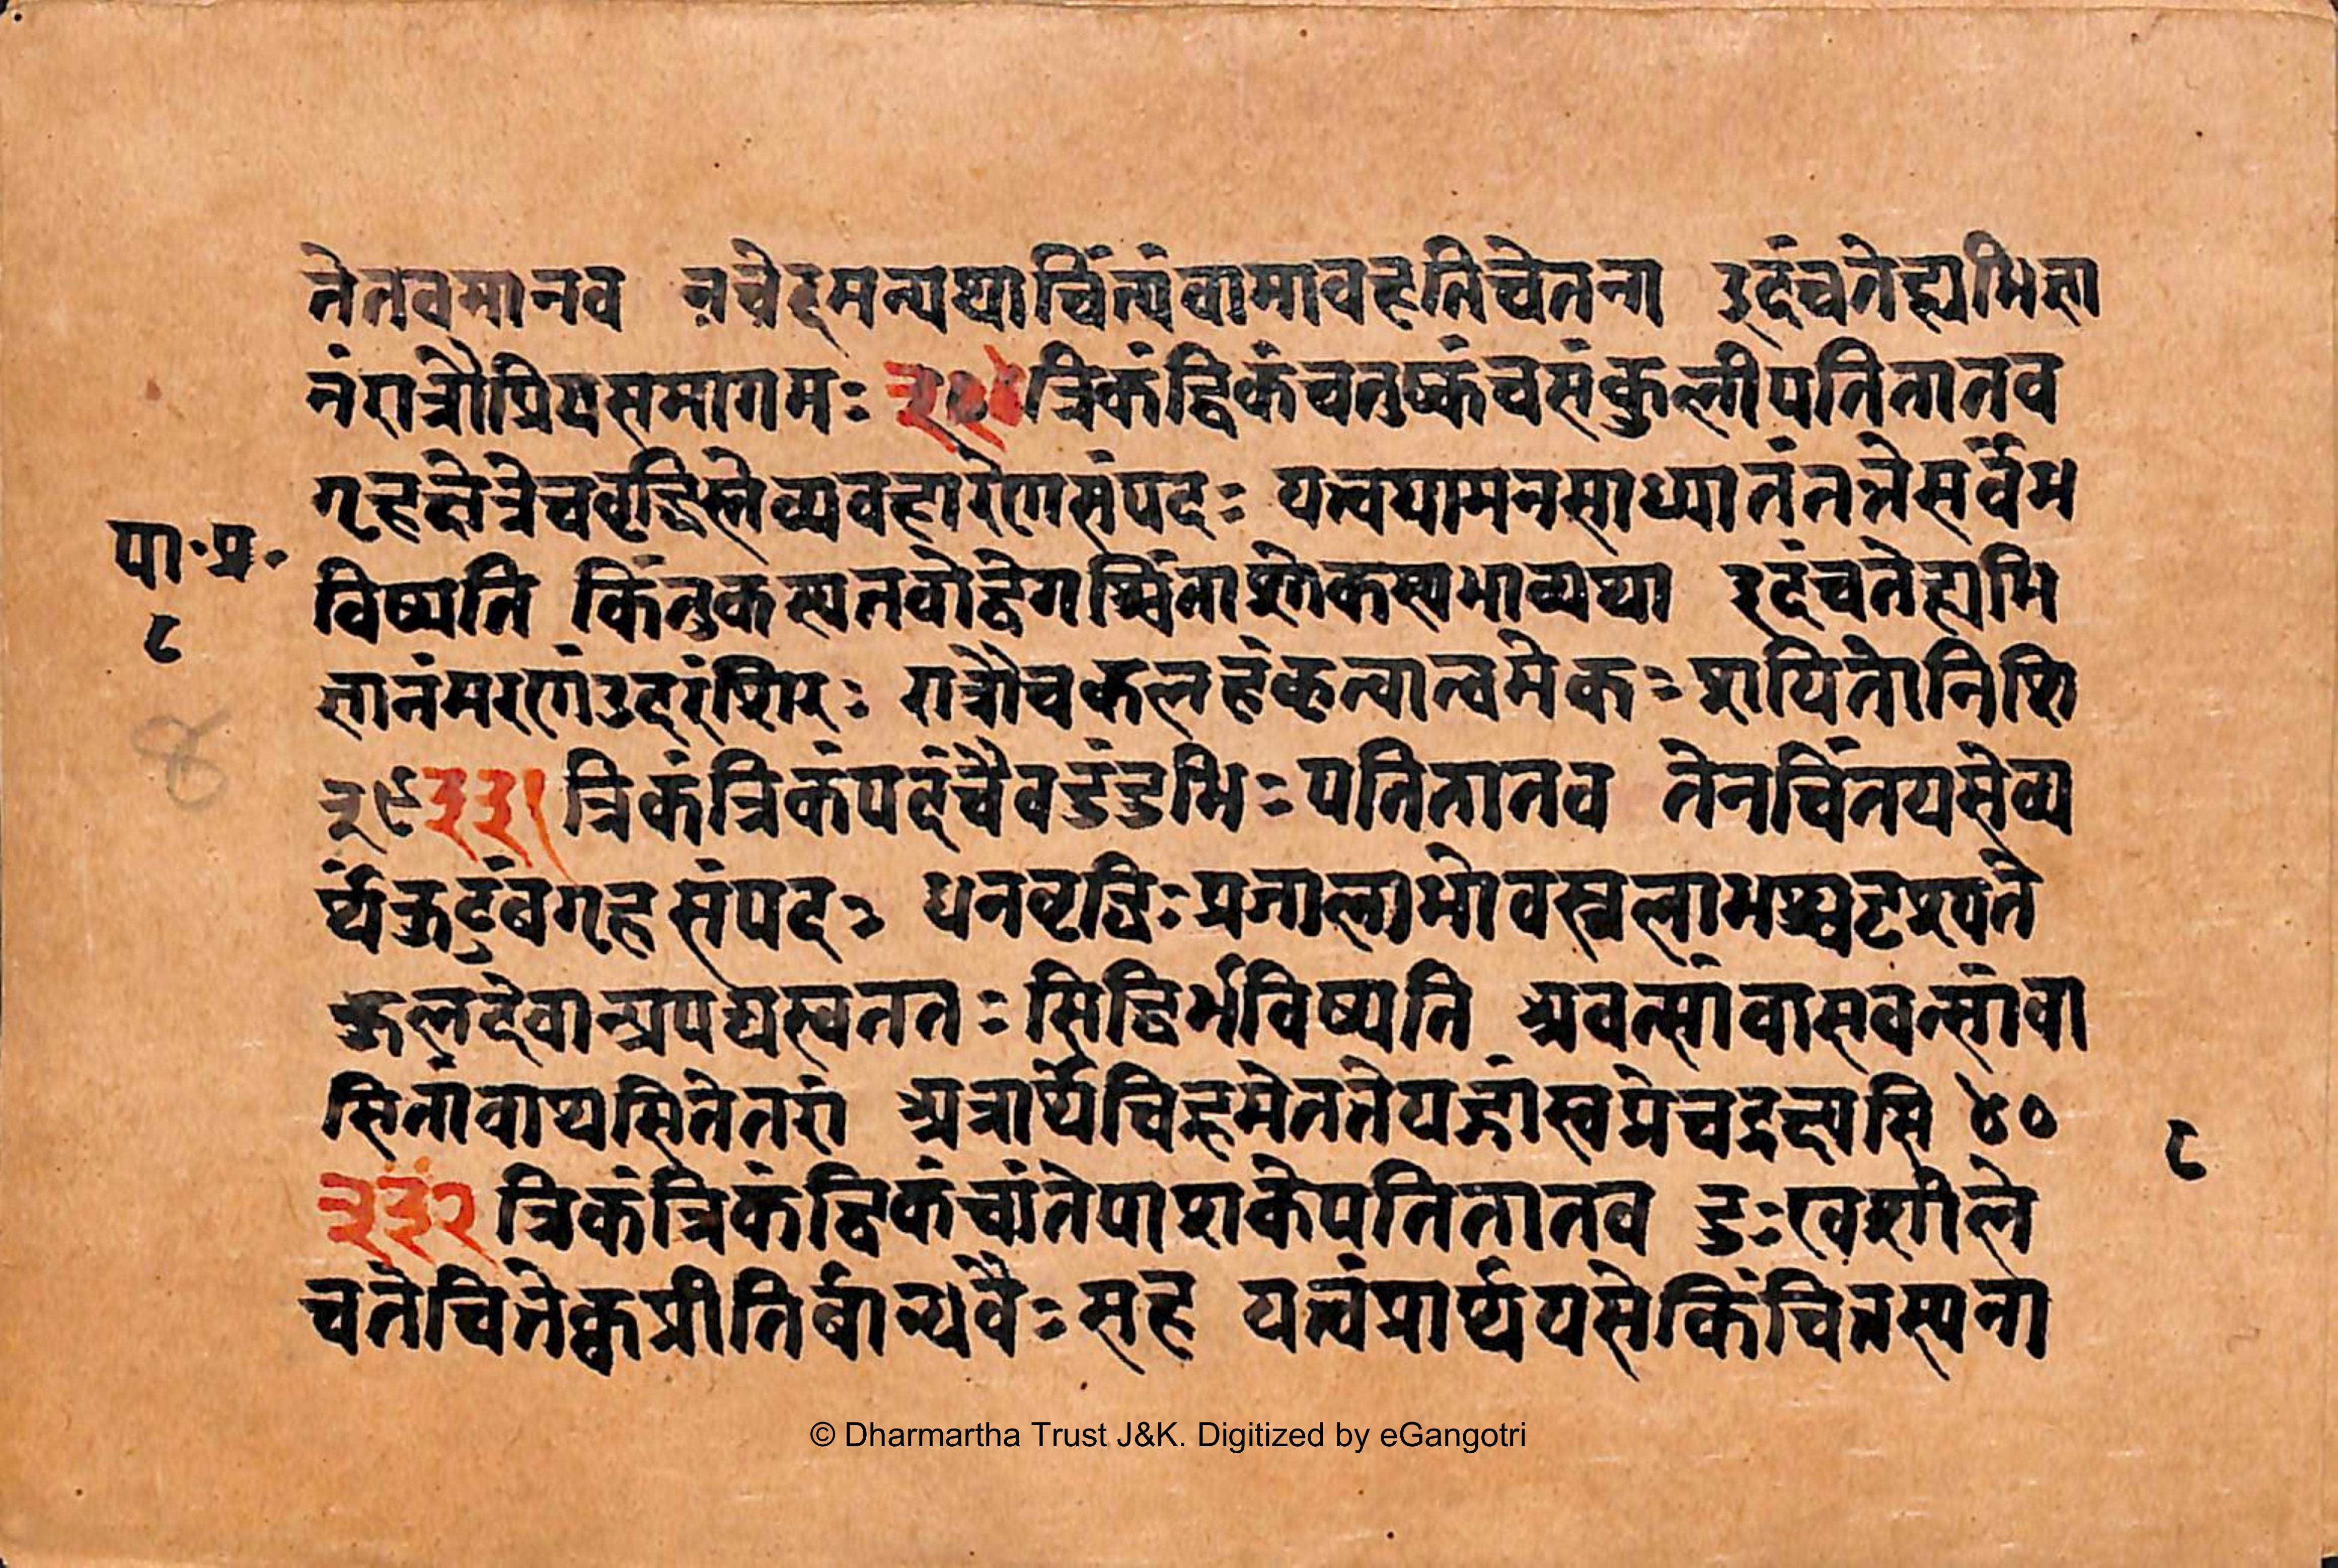 तेतवमानव नचेदमन्यथाचिंत्यंवामावहतिचेतना इदंचतेह्यभिज्ञा
नंरात्रौप्रियसमागमः त्रिकंद्विकंचतुष्कंचसंकुलीपतितातव
गृहक्षेत्रेचवृद्धिस्तेव्यवहारेणसंपदः यत्त्वयामनसाध्यातंतत्तेसर्वंभ
पा॰प्र॰
८
विष्यति किंतुकस्यतवोद्वेगश्चिंताशोकस्यभाव्यथा इदंचतेह्यभि
ज्ञानंमरणंउदरंशिरः रात्रौचकलहंकृत्वात्वमेकःशायितोनिशि
४
३९ ३३१ त्रिकंत्रिकंपदंचैवडुंडुभिःपतितातव तेनचिंतयसेव्य
र्थंकुटुंबगृहसंपदः धनवृद्धिःप्रजालाभोवस्त्रलाभश्चदृश्यते
कुलदेवान्प्रपद्यस्वततःसिद्धिर्भविष्यति अवत्सांवासवत्सांवा
सितांवाप्यसितेतरां अत्रार्थेचिह्नमेतत्तेयद्गांस्वप्नेचद्रक्ष्यसि ४०
८
३३२ त्रिकंत्रिकंद्विकंचांतेपाशकेपतितातव दुःखशीले
चतेचित्तेक्वप्रीतिर्बांधवैःसह यत्त्वंप्रार्थयसेकिंचित्तस्यना
© Dharmartha Trust J&K. Digitized by eGangotri